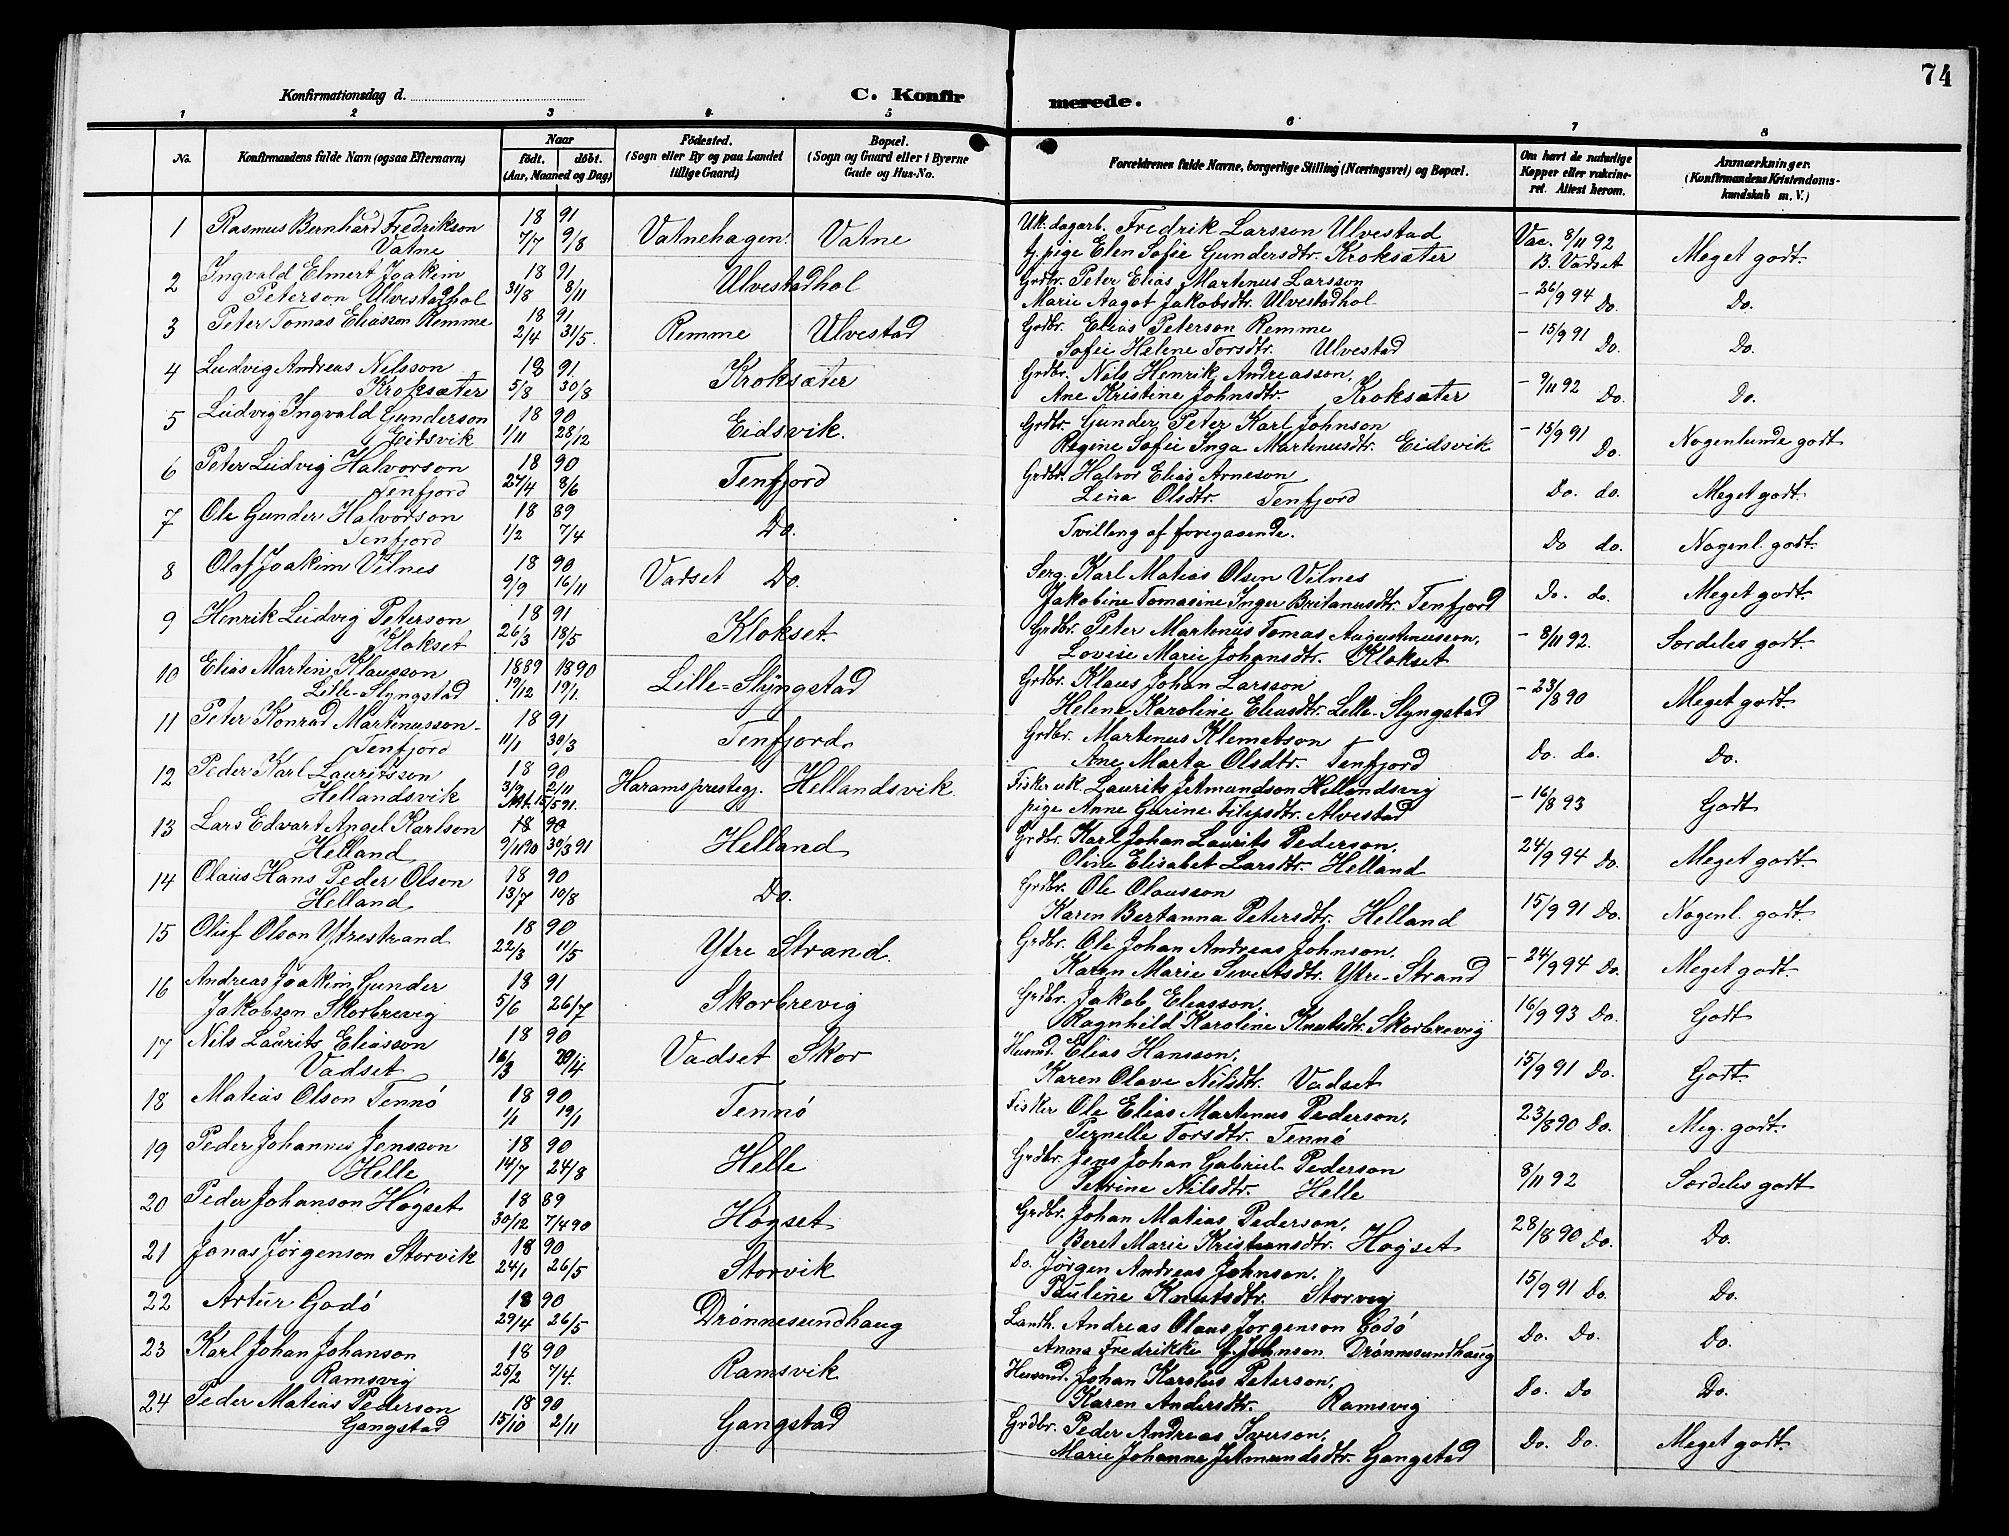 74
Konfirmationsdag d.
C. Konfirmerede.
1 2 3 4 5 6 7 8
No. Konfirmandens fulde Navn (ogsaa Efternavn) Naar født. døbt. (Aar, Maaned og Dag) Fødested. (Sogn eller By og paa Landet tillige Gaard) Bopæl. (Sogn og Gaard eller i Byerne Gade og Hus-No. Forældrenes fulde Navne, borgerlige Stilling (Næringsvei) og Bopæl. Om havt de naturlige Kopper eller vakcineret. Attest herom. Anmærkninger. (Konfirmandens Kristendomskundskab m. V.)
1 Rasmus Bernhard Fredrikson 18 91 Vatnehagen. Vatne Uk. dagarb. Fredrik Larsson Ulvestad Vac. 8/11 92 Meget godt.
Vatne 7/7 9/8 tj. pige Elen Sofie Gundersdtr. Kroksæter B. Vadset
2 Ingvald Elmert Joakim 18 91 Ulvestadhol Grdbr. Peter Elias Martenus Larsson - 26/9 94 Do. Do.
Peterson Ulvestadhol 31/8 8/11 Marie Aagot Jakobsdtr. Ulvestadhol
3 Peter Tomas Eliasson Remme 18 91 Remme Ulvestad Grdbr. Elias Peterson Remme - 15/9 91 Do. Do.
2/4 31/5. Sofie Helene Torsdtr. Ulvestad
4 Ludvig Andreas Nilsson 18 91 Kroksæter Grdbr. Nils Henrik Andreasson, - 9/11 92 Do. Do.
Kroksæter 5/8 30/8 Ane Kristine Johnsdtr. Kroksæter
5 Ludvig Ingvald Gunderson 18 90 Eidsvik. Grdbr. Gunder Peter Karl Johnson - 15/9 91 Do. Nogenlunde godt
Eidsvik 1/11 28/12 Regine Sofie Inga Martinusdtr. Eidsvik
6 Peter Ludvig Halvorson 18 90 Tenfjord Grdbr. Halvor Elias Arneson Do. do. Meget godt.
Tenfjord 27/4 8/6 Lina Olsdtr. Tenfjord
7 Ole Gunder Halvorson 18 89 Do. Tvilling af foregaaende. Do do. Nogenl. godt.
Tenfjord 1/2 7/4
8 Olaf Joakim Vilnes 18 90 Vadset Do. Serg. Karl Matias Olsen Vilnes Do. do. Meget godt.
9/9 16/11 Jakobine Tomasine Inger Britanusdtr. Tenfjord
9 Henrik Ludvig Peterson 18 91 Klokset. Grdbr. Peter Martenus Tomas Augustinusson, - 8/11 92. Særdeles godt.
Klokset 26/3 18/5 Lovise Marie Johansdtr. Klokset
10 Elias Martin Klausson 1889 1890 Lille-Slyngstad Grdbr. Klaus Johan Larsson - 23/8 90 Meget godt.
Lille-Slyngstad 19/12 19/1. Helene Karoline Eliasdtr. Lille-Slyngstad
11 Peter Konrad Martinusson 18 91 Tenfjord. Grdbr. Martenus Klemetson Do. do. Do.
Tenfjord 11/1 30/3 Ane Marta Olsdtr. Tenfjord
12 Peder Karl Lauritsson 18 90 Harams prestegj. Hellandsvik. Fisker uk. Laurits J. Amundson Hellandsvig - 16/8 93 Godt
Hellandsvik 3/9 2/11 pige Anne Gurine Filipsdtr. Alvestad
15/5 91.
13 Lars Edvart Angel Karlson 18 90 Helland Grdbr. Karl Johan Laurits Pederson, 24/9 94 Do. Meget godt.
Helland 9/11 90 30/3 91 Oline Elisabet Larsdtr. Helland
14 Olaus Hans Peder Olson 18 90 Do. Grdbr. Ole Olausson 15/9 91 Do. Nogenl. godt
Helland 13/7 10/8 Karen Bertanna Petersdtr. Helland
15 Oluf Olson Ytrestrand 18 90 Ytre Strand. Grdbr. Ole Johan Andreas Johnson, - 24/9 94 Do. Meget godt.
22/3 11/5 Karen Marie Sivertsdtr. Ytre-Strand
16 Andreas Joakim Gunder 18 91 Skorbrevig Grdbr. Jakob Eliasson, 16/9 93 Do. Godt
Jakobson Skorbrevig 5/6 26/7 Ragnhild Karoline Knutsdtr. Skorbrevig
17 Nils Laurits Eliasson 18 90 Vadset Skor Husmd. Elias Hansson, 15/9 91 Do. Godt.
Vadset 16/3 20/4 Karen Olave Nilsdtr. Vadset
18 Matias Olson Tennø 18 90 Tennø Fisker Ole Elias Martenus Pederson, 23/8 90 Do. Meg. godt.
1/1 19/1 Pernelle Torsdtr. Tennø
19 Peder Johannes Jensson 18 90 Helle Grdbr. Jens Johan Gabriel Pederson 8/11 92 Særdeles godt
Helle 14/7 24/8 Petrine Nilsdtr. Helle
20 Peder Johanson Høgset 18 89 Høgset Grdbr. Johan Matias Pederson, 28/8 90 Do. Do.
30/12 7/4 90 Beret Marie Kristiansdtr. Høgset
21 Jonas Jørgenson Storvik 18 90 Storvik Do. Jørgen Andreas Johnson, 15/9 91 Do. Do.
24/1 26/5 Pauline Knutsdtr. Storvig
22 Artur Godø 18 90 Drønnesundhaug Landh. Andreas Olaus Jørgenson Godø Do. Do. Do.
29/4 26/5 Anna Fredrikke J. Johnson Drønnesundhaug
23 Karl Johan Johanson 18 90 Ramsvik Husmd. Johan Karolus Peterson, Do. Do Do.
Ramsvig 25/2 7/4. Karen Andersdtr. Ramsvig
24 Peder Matias Pederson 18 90 Gangstad Grdbr. Peder Andreas Iverson, Do. Do. Meget godt.
Gangstad 15/10 2/11 Marie Johanne J. Amundsdtr. Gangstad